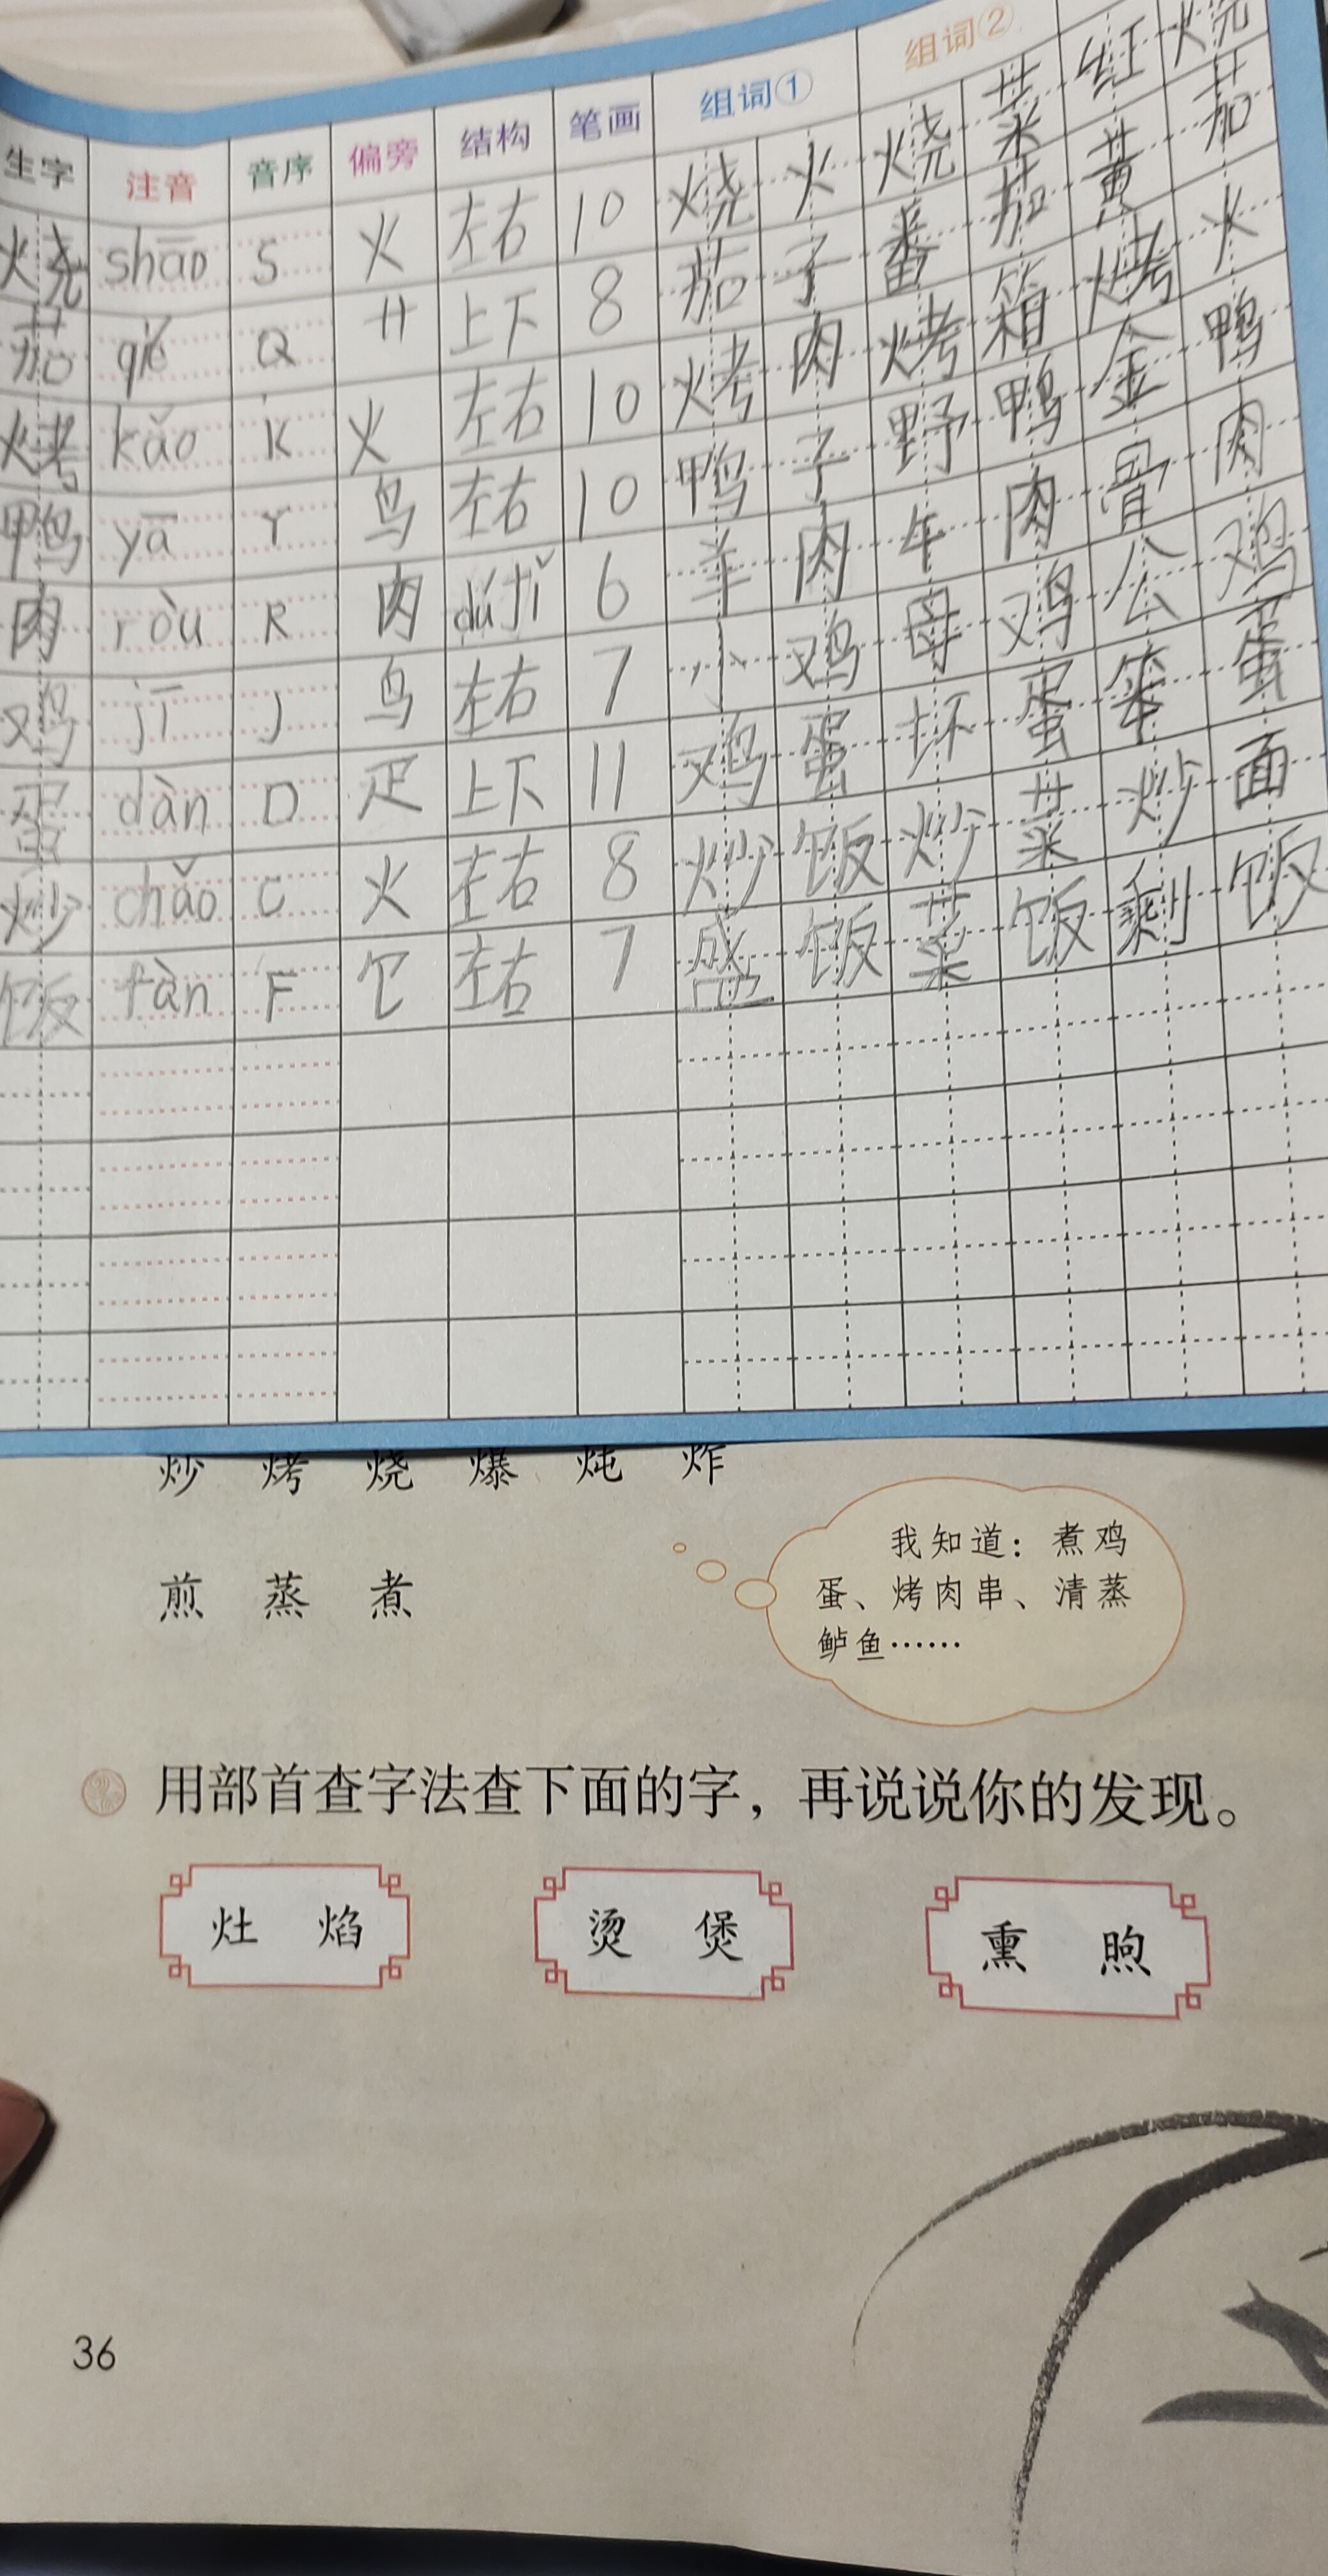 生字 注音 音序 偏旁 结构 笔画 组词① 组词②
烧 shāo S 火 左右 10 烧火 烧菜 红烧
茄 qié Q 艹 上下 8 茄子 番茄 黄茄
烤 kǎo K 火 左右 10 烤肉 烤箱 烤火
鸭 yā Y 鸟 左右 10 鸭子 野鸭 金鸭
肉 ròu R 肉 dútǐ 6 羊肉 牛肉 骨肉
鸡 jī J 鸟 左右 7 小鸡 母鸡 公鸡
蛋 dàn D 疋 上下 11 鸡蛋 坏蛋 笨蛋
炒 chǎo C 火 左右 8 炒饭 炒菜 炒面
饭 fàn F 饣 左右 7 盛饭 菜饭 剩饭
炒 烤 烧 爆 炖 炸
煎 蒸 煮
我知道：煮鸡
蛋、烤肉串、清蒸
鲈鱼……
用部首查字法查下面的字，再说说你的发现。
灶 焰 烫 煲 熏 煦
36